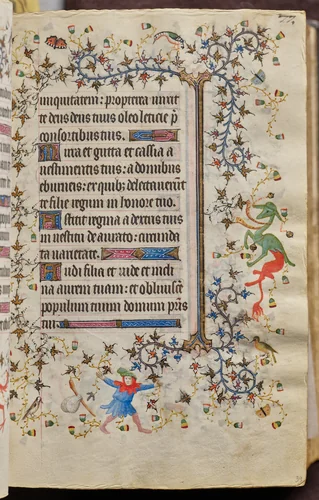 iniquitatem: propterea unxit
te deus deus tuus oleo leticie p̄
consortibus tuis.
Mirra et gutta et cassia a
vestimentis tuis: a domibus
eburneis: ex quib; delectauerūt
te filie regum in honore tuo.
Astitit regina a dextris tuis
in vestitu de aurato: circunda
ta varietate.
Audi filia et vide et incli
na aurem tuam: et obliuisce
populum tuum domum patris
tui.